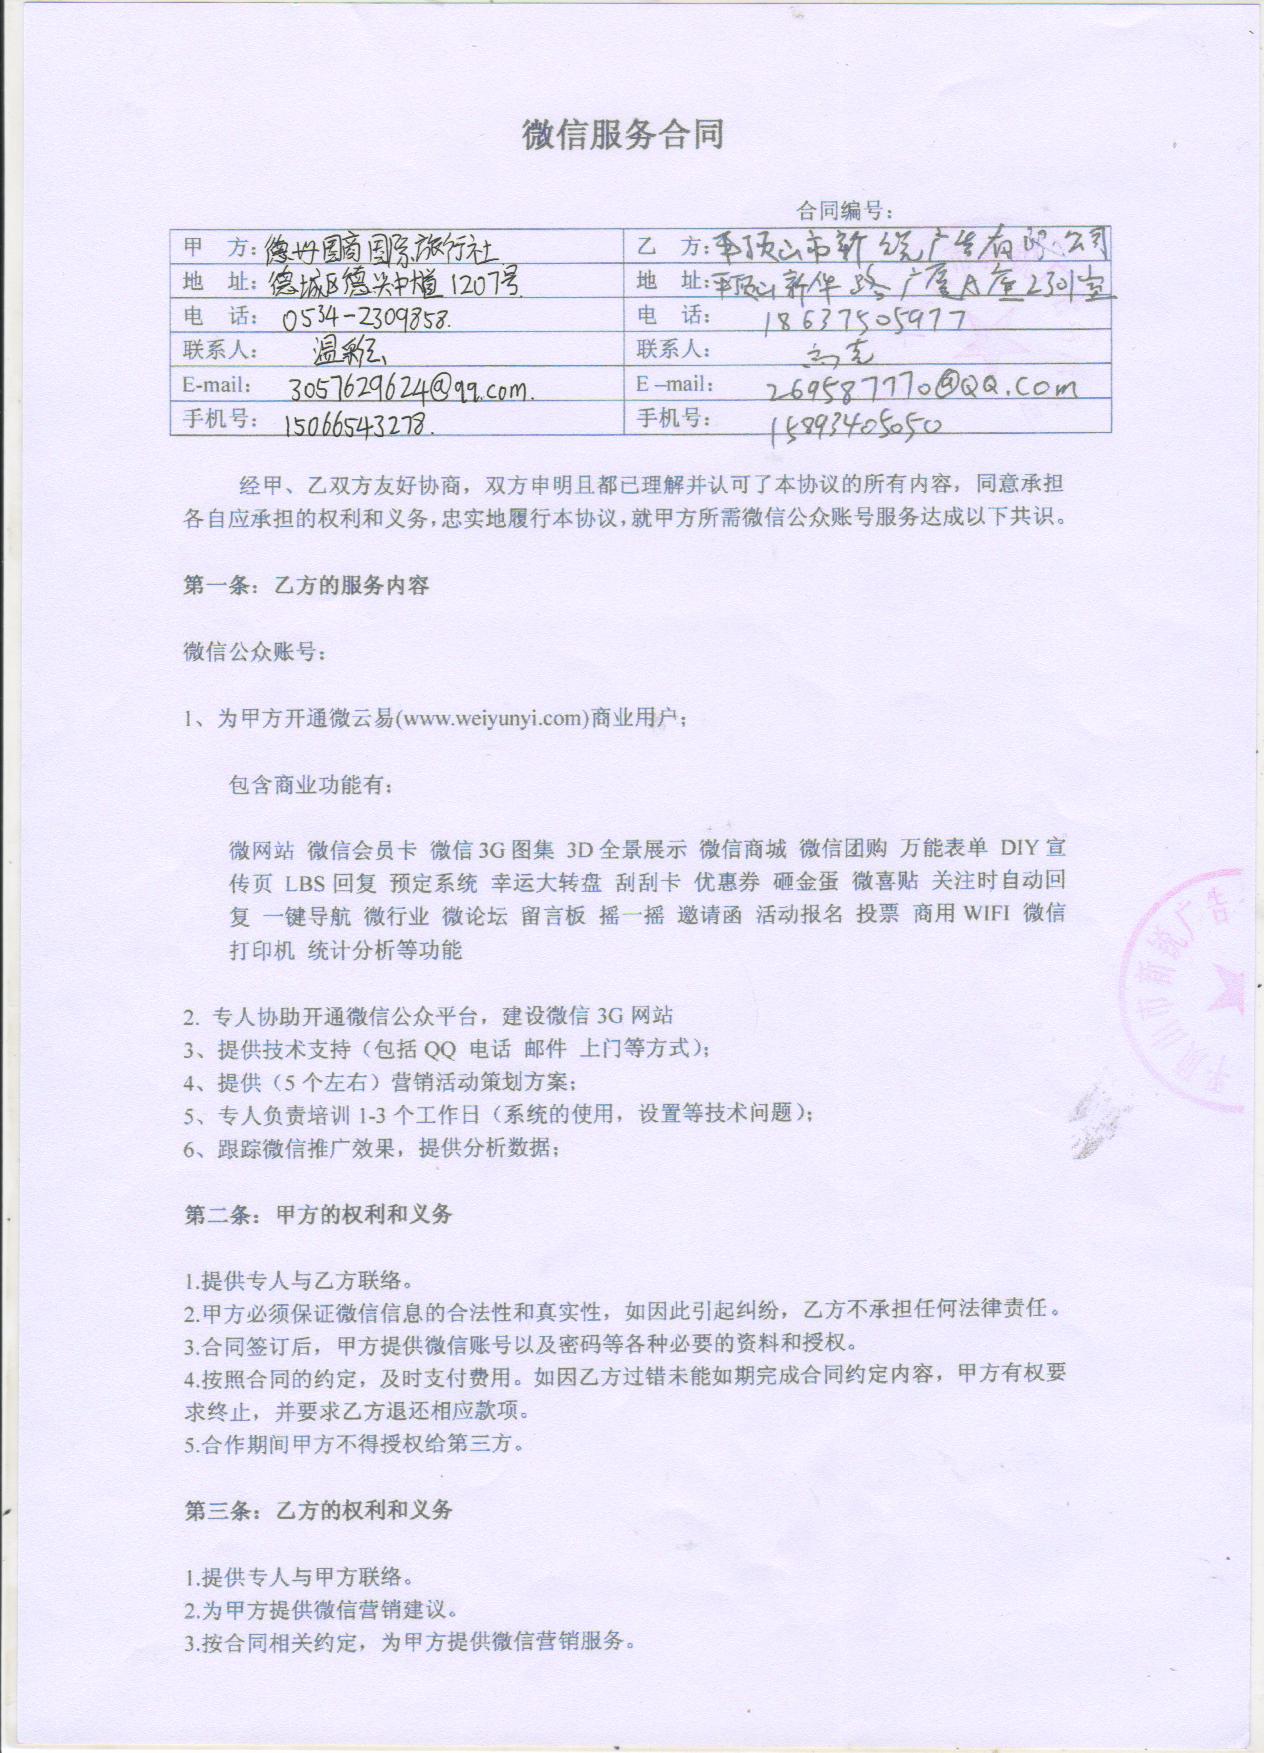 微信服务合同
合同编号：
甲 方：德州国商国际旅行社
乙 方：平顶山市新统广告有限公司
地 址：德城区德兴中大道1207号
地 址：平顶山新华路广厦A座2301室
电 话：0534-2309858.
电 话：18637505977
联系人：温彩云
联系人：
E-mail：3057629624@qq.com.
E–mail：269587770@QQ.com
手机号：15066543278.
手机号：15893405050
经甲、乙双方友好协商，双方申明且都已理解并认可了本协议的所有内容，同意承担
各自应承担的权利和义务，忠实地履行本协议，就甲方所需微信公众账号服务达成以下共识。
第一条：乙方的服务内容
微信公众账号：
1、为甲方开通微云易(www.weiyunyi.com)商业用户；
包含商业功能有：
微网站 微信会员卡 微信3G图集 3D全景展示 微信商城 微信团购 万能表单 DIY宣
传页 LBS回复 预定系统 幸运大转盘 刮刮卡 优惠券 砸金蛋 微喜贴 关注时自动回
复 一键导航 微行业 微论坛 留言板 摇一摇 邀请函 活动报名 投票 商用WIFI 微信
打印机 统计分析等功能
2. 专人协助开通微信公众平台，建设微信3G网站
3、提供技术支持（包括QQ 电话 邮件 上门等方式）；
4、提供（5个左右）营销活动策划方案；
5、专人负责培训1-3个工作日（系统的使用，设置等技术问题）；
6、跟踪微信推广效果，提供分析数据；
平顶山市新统广告
第二条：甲方的权利和义务
1.提供专人与乙方联络。
2.甲方必须保证微信信息的合法性和真实性，如因此引起纠纷，乙方不承担任何法律责任。
3.合同签订后，甲方提供微信账号以及密码等各种必要的资料和授权。
4.按照合同的约定，及时支付费用。如因乙方过错未能如期完成合同约定内容，甲方有权要
求终止，并要求乙方退还相应款项。
5.合作期间甲方不得授权给第三方。
第三条：乙方的权利和义务
1.提供专人与甲方联络。
2.为甲方提供微信营销建议。
3.按合同相关约定，为甲方提供微信营销服务。